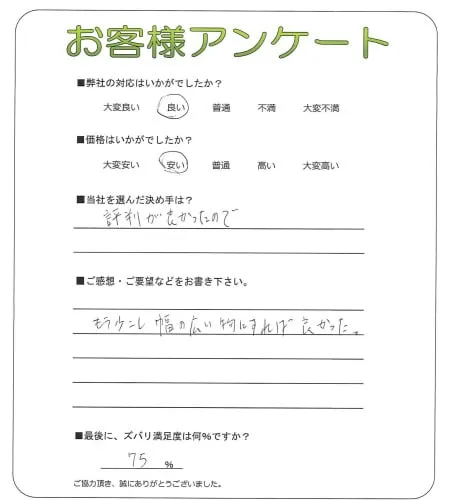 お客様アンケート
■弊社の対応はいかがでしたか？
大変良い 良い 普通 不満 大変不満
■価格はいかがでしたか？
大変安い 安い 普通 高い 大変高い
■当社を選んだ決め手は？
評判が良かったので
■ご感想・ご要望などをお書き下さい。
もう少こし幅の広い物にすれば良かった。
■最後に、ズバリ満足度は何%ですか？
75 %
ご協力頂き、誠にありがとうございました。